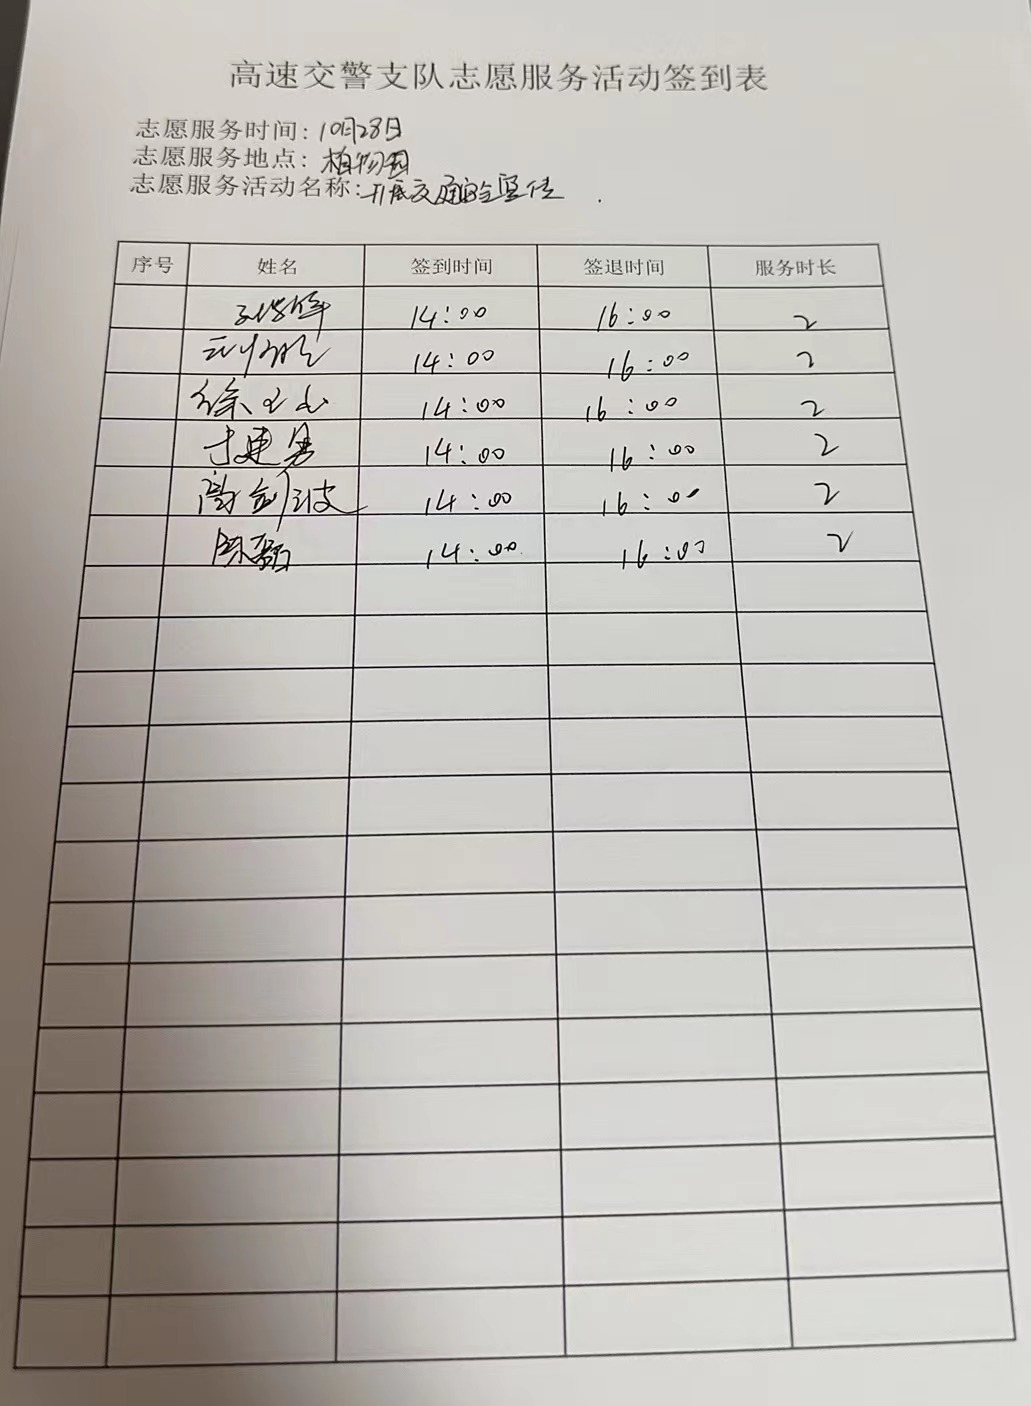 高速交警支队志愿服务活动签到表
志愿服务时间：10月28日
志愿服务地点：植物园
志愿服务活动名称：开展交通安全宣传
序号 姓名 签到时间 签退时间 服务时长
14:00 16:00 2
14:00 16:00 2
徐文山 14:00 16:00 2
于建勇 14:00 16:00 2
高剑波 14:00 16:00 2
14:00 16:00 2